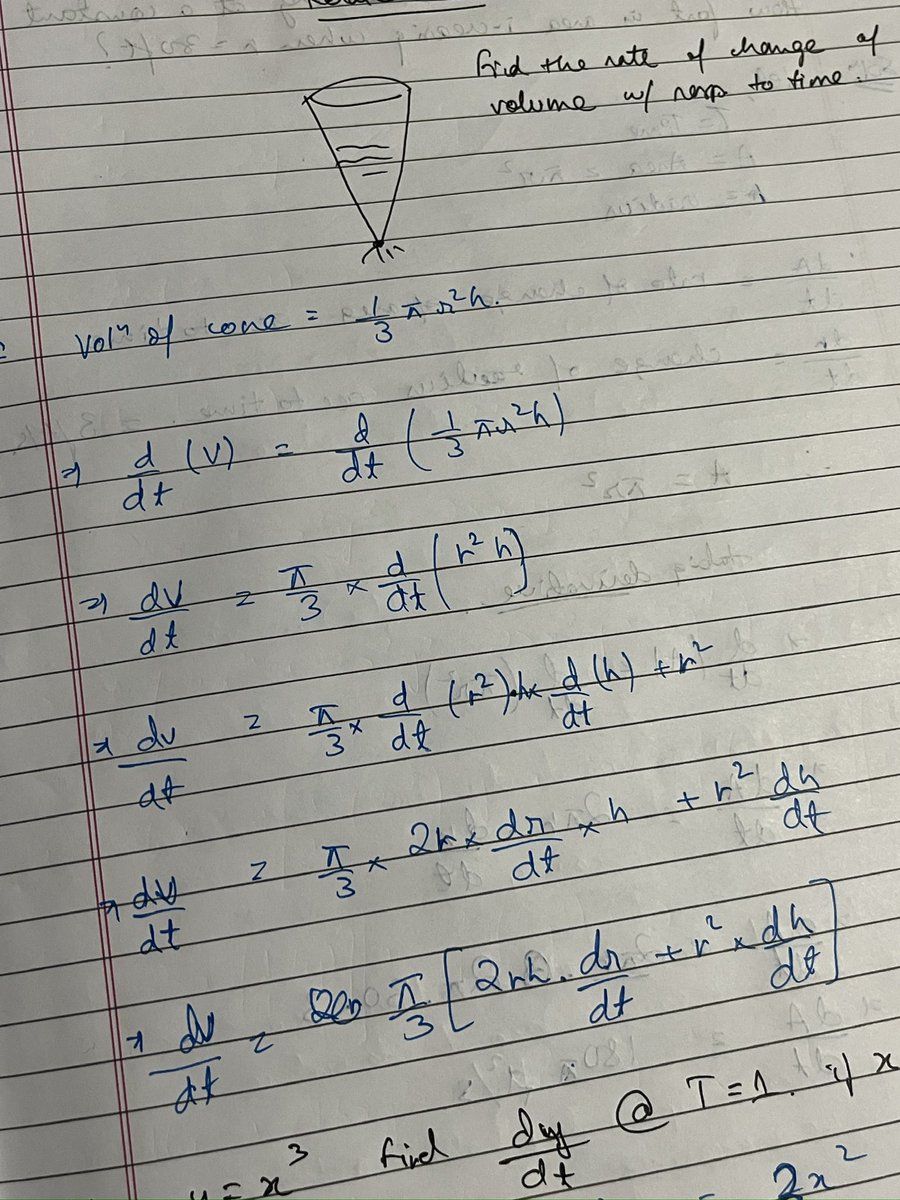 find the rate of change of
volume w/ resp to time.
Volⁿ of cone = 1/3 π r²h.
⇒ d/dt (V) = d/dt (1/3 πr²h)
⇒ dV/dt = π/3 × d/dt (r² h)
⇒ dv/dt = π/3 × d/dt (r²) × d/dt (h) + r²
⇒ dv/dt = π/3 × 2r × dr/dt × h + r² dh/dt
⇒ dv/dt = π/3 [2rh . dr/dt + r² × dh/dt]
y = x³ find dy/dt @ T=1. if x
= 2x²